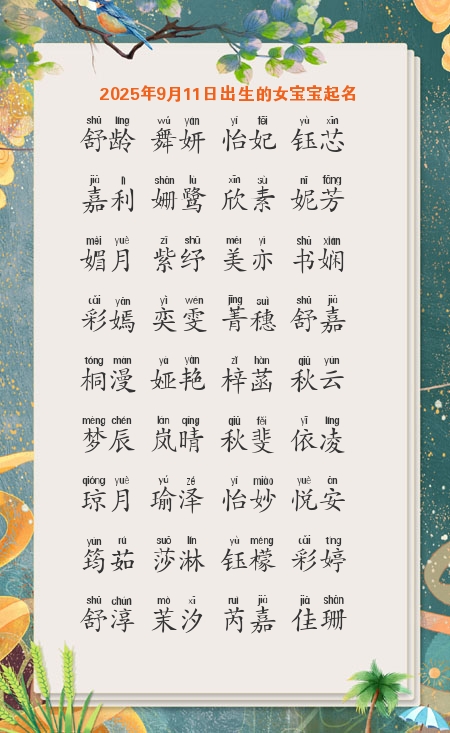 2025年9月11日出生的女宝宝起名
shū líng wǔ yán yí fēi yù xīn
舒龄 舞妍 怡妃 钰芯
jiā lì shān lù xīn sù nī fāng
嘉利 姗鹭 欣素 妮芳
mèi yuè zǐ shū měi yì shū xián
媚月 紫纾 美亦 书娴
cǎi yān yì wén jīng suì shū jiā
彩嫣 奕雯 菁穗 舒嘉
tóng màn yà yàn zǐ hàn qiū yún
桐漫 娅艳 梓菡 秋云
mèng chén lán qíng qiū fěi yī líng
梦辰 岚晴 秋斐 依凌
qióng yuè yú zé yí miào yuè ān
琼月 瑜泽 怡妙 悦安
yún rú suō lín yù méng cǎi tíng
筠茹 莎淋 钰檬 彩婷
shū chún mò xī ruì jiā jiā shān
舒淳 茉汐 芮嘉 佳珊